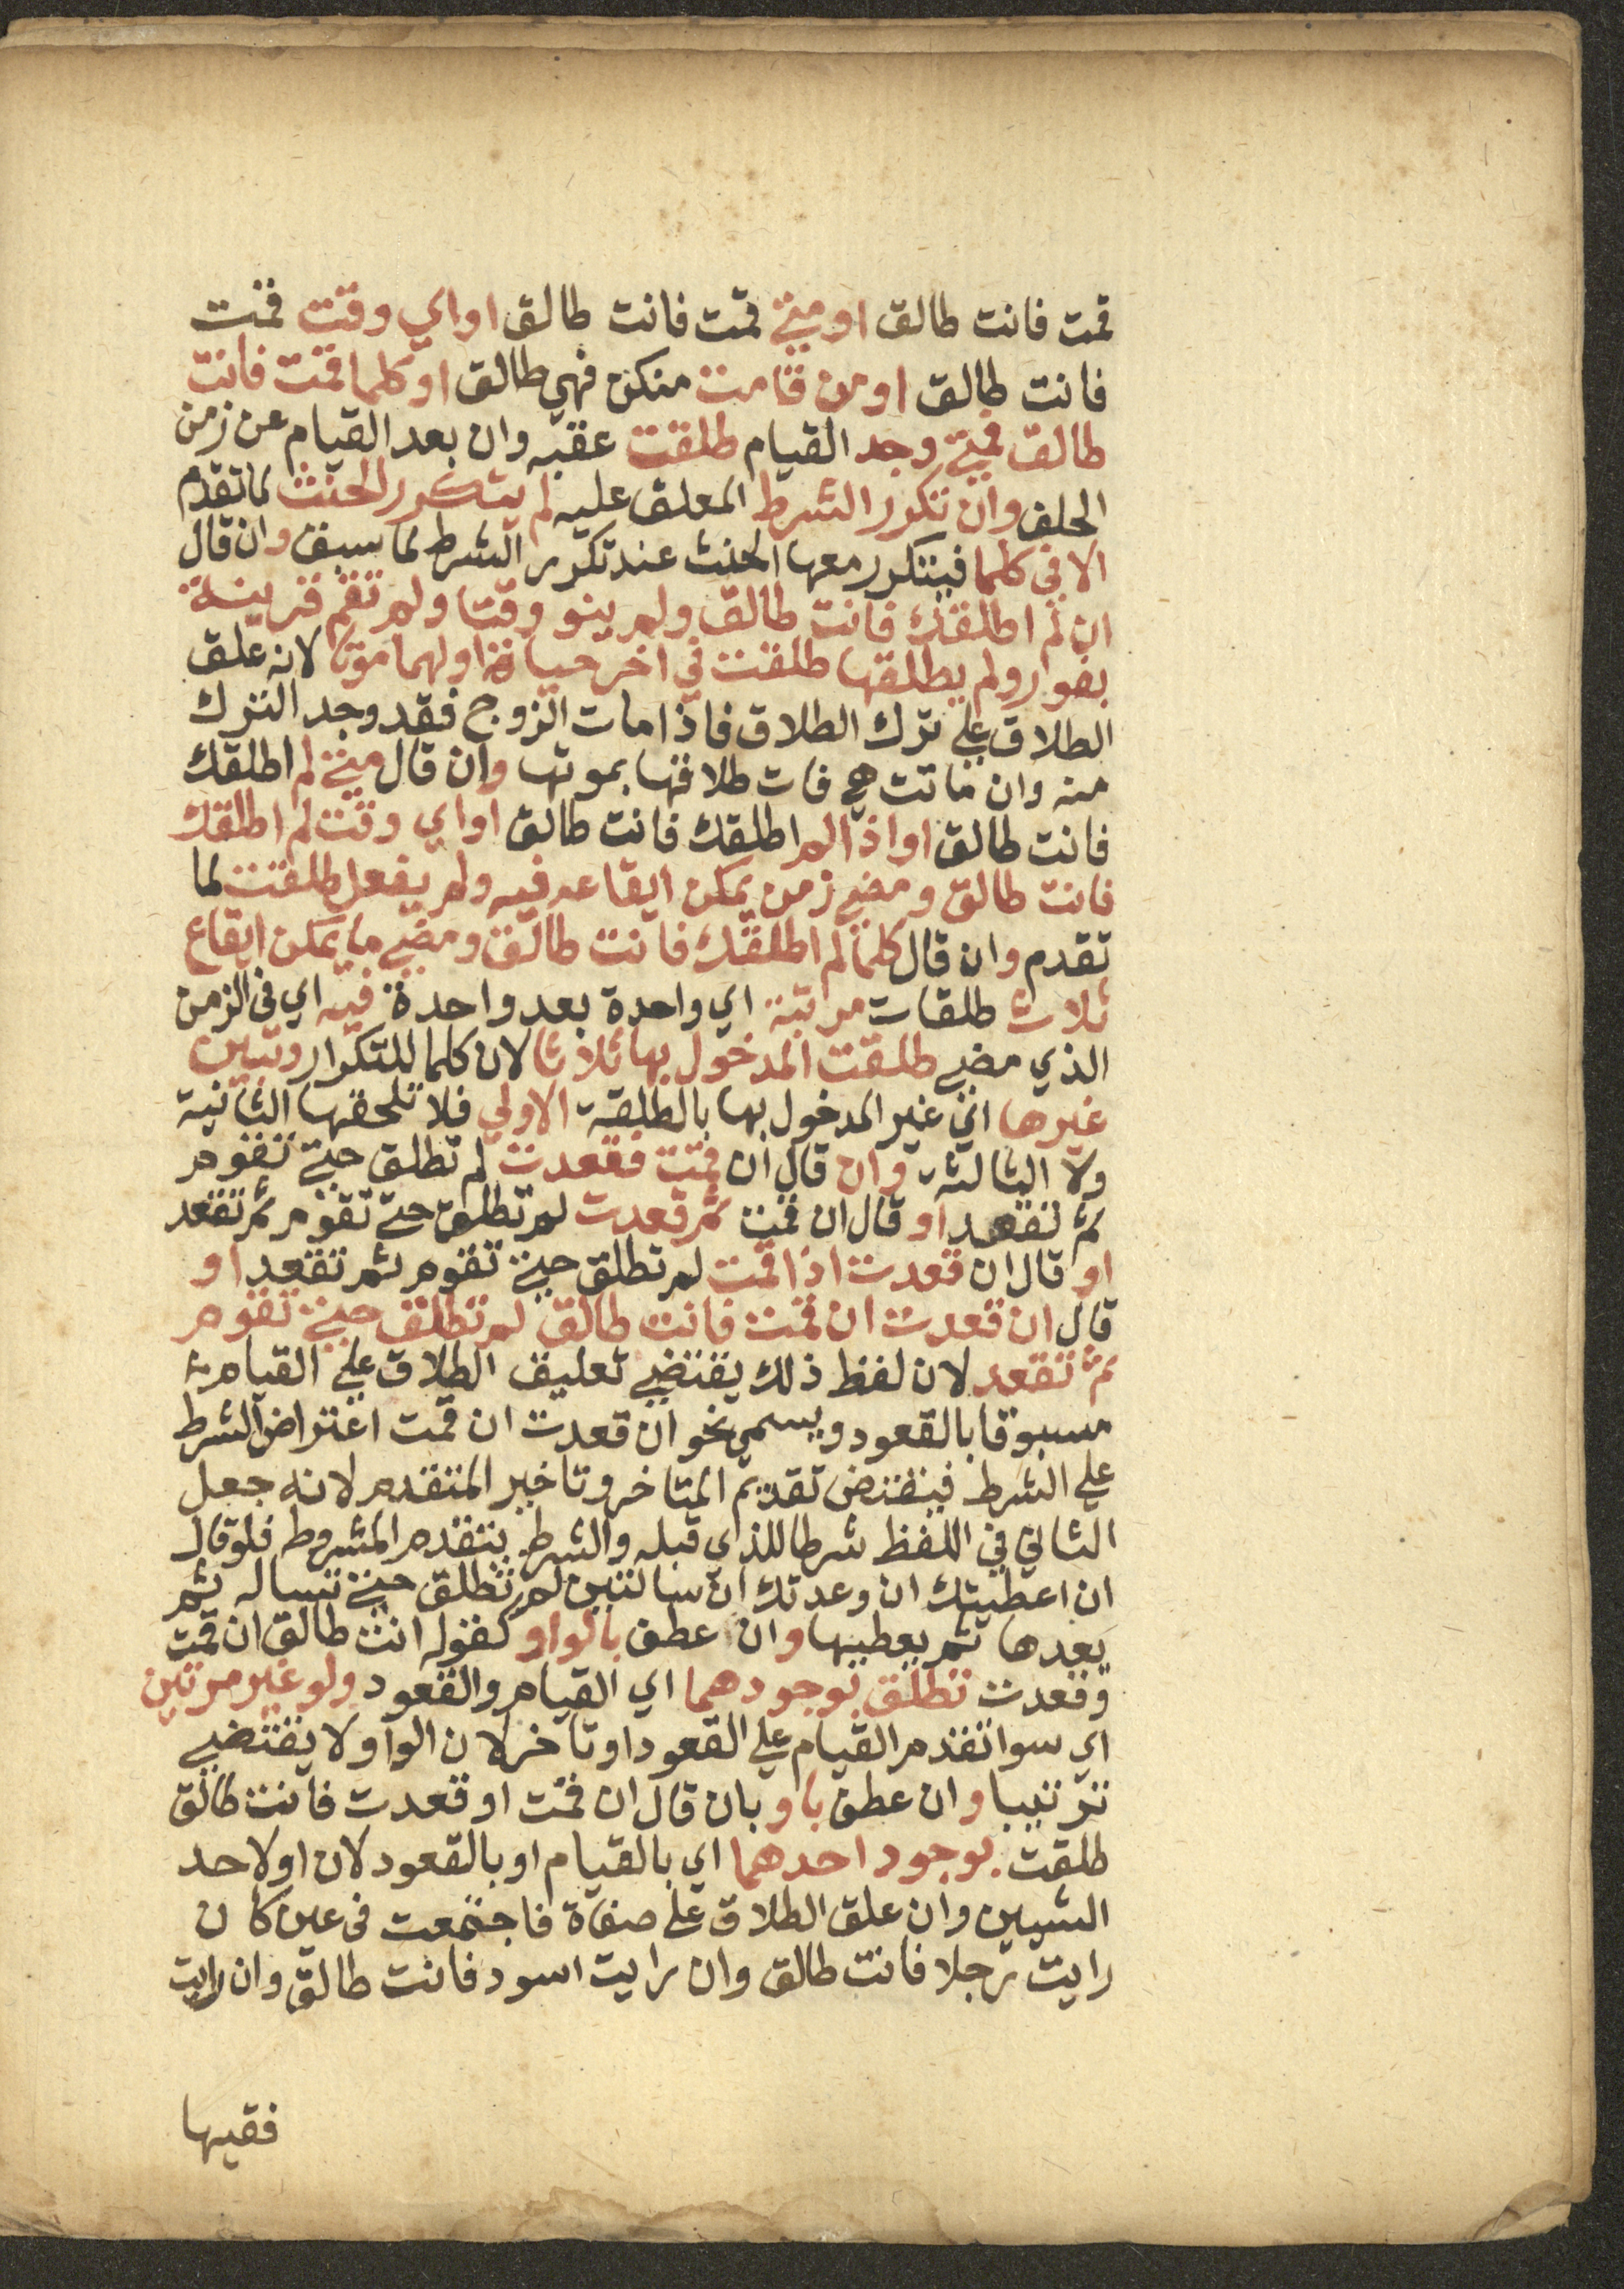 قمت فانت طالق او متى قمت فانت طالق او اي وقت قمت
فانت طالق او من قامت منكن فهي طالق او كلما قمت فانت
طالق فمتى وجد القيام طلقت عقبه وان بعد القيام عن زمن
الحلف وان تكرر الشرط المعلق عليه لم يتكرر الحنث لما تقدم
الا في كلما فيتكرر معها الحنث عند تكرر الشرط لما سبق وان قال
ان لم اطلقك فانت طالق ولم ينو وقتا ولم تقم قرينة
بفور ولم يطلقها طلقت في اخر حياة اولهما موتا لانه علق
الطلاق على ترك الطلاق فاذا مات الزوج فقد وجد الترك
منه وان ماتت هي فات طلاقها بموتها وان قال متى لم اطلقك
فانت طالق او اذا لم اطلقك فانت طالق او اي وقت لم اطلقك
فانت طالق ومضى زمن يمكن ايقاعه فيه ولم يفعل طلقت لما
تقدم وان قال كلما لم اطلقك فانت طالق ومضى ما يمكن ايقاع
ثلاث طلقات مرتبة اي واحدة بعد واحدة فيه اي في الزمن
الذي مضى طلقت المدخول بها ثلاثا لان كلما للتكرار وتبين
غيرها اي غير المدخول بها بالطلقة الاولي فلا تلحقها الثانية
ولا الثالثة وان قال ان قمت فقعدت لم تطلق حتى تقوم
ثم تقعد او قال ان قمت ثم قعدت لم تطلق حتى تقوم ثم تقعد
او قال ان قعدت اذا قمت لم تطلق حتى تقوم ثم تقعد او
قال ان قعدت ان قمت فانت طالق لم تطلق حتى تقوم
ثم تقعد لان لفظ ذلك يقتضي تعليق الطلاق على القيام
مسبوقا بالقعود ويسمى نحو ان قعدت ان قمت اعتراض الشرط
على الشرط فيقتض تقديم المتاخر وتاخير المتقدم لانه جعل
الثاني في اللفظ شرطا للذي قبله والشرط يتقدم المشروط فلو قال
ان اعطيتك ان وعدتك ان سالتني لم تطلق حتى تساله ثم
يعدها ثم يعطيها وان عطف بالواو كقوله انت طالق ان قمت
وقعدت تطلق بوجودهما اي القيام والقعود ولو غير مرتين
اي سوا تقدم القيام على القعود او تاخر لان الواو لا يقتضي
ترتيبا وان عطف باو بان قال ان قمت او قعدت فانت طالق
طلقت بوجود احدهما اي بالقيام او بالقعود لان او لاحد
الشيين وان علق الطلاق على صفاة فاجتمعت في عين كان
رايت رجلا فانت طالق وان رايت اسود فانت طالق وان رايت
فقيها